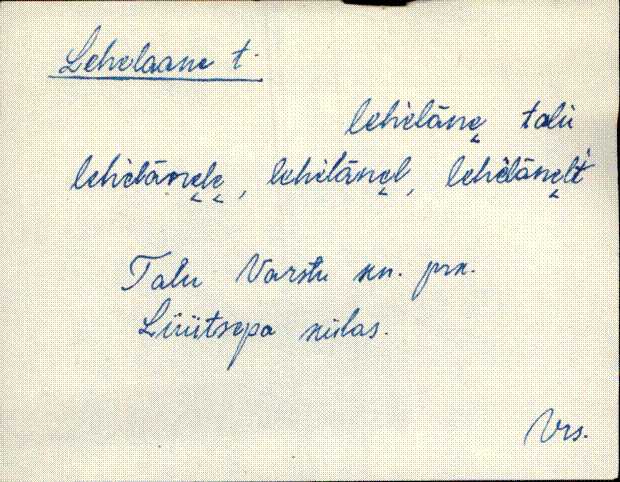 Lehelaane t.
lehèlāne̬ talu
lehèlāne̬le̬, lehèlāne̬l, lehèlāne̬lt
Talu Varstu kn. prk.
Lüütsepa külas.
Vrs.